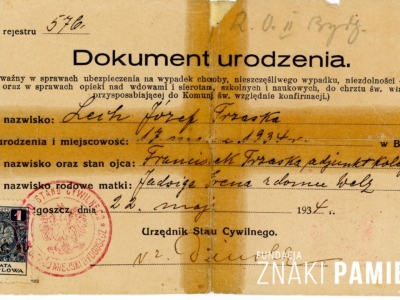 rejestru 576.
R. O. II Bydg.
Dokument urodzenia.
ważny w sprawach ubezpieczenia na wypadek choroby, nieszczęśliwego wypadku, niezdolności
oraz w sprawach opieki nad wdowami i sierotami, szkolnych i naukowych, do chrztu św.
przysposabiającej do Komunj św. względnie konfirmacji.)
nazwisko: Lech Józef Trzaska
urodzenia i miejscowość: 17 1934 r w B
nazwisko oraz stan ojca: Franciszek Trzaska, adjunkt kolej
nazwisko rodowe matki: Jadwiga Irena z domu Welz
goszcz, dnia 22. maj 1934 r.
STANU CYWILNEGO
1
ŁATA
LOWA
Urzędnik Stanu Cywilnego.
FUNDACJA
ZNAKI PAMIĘ